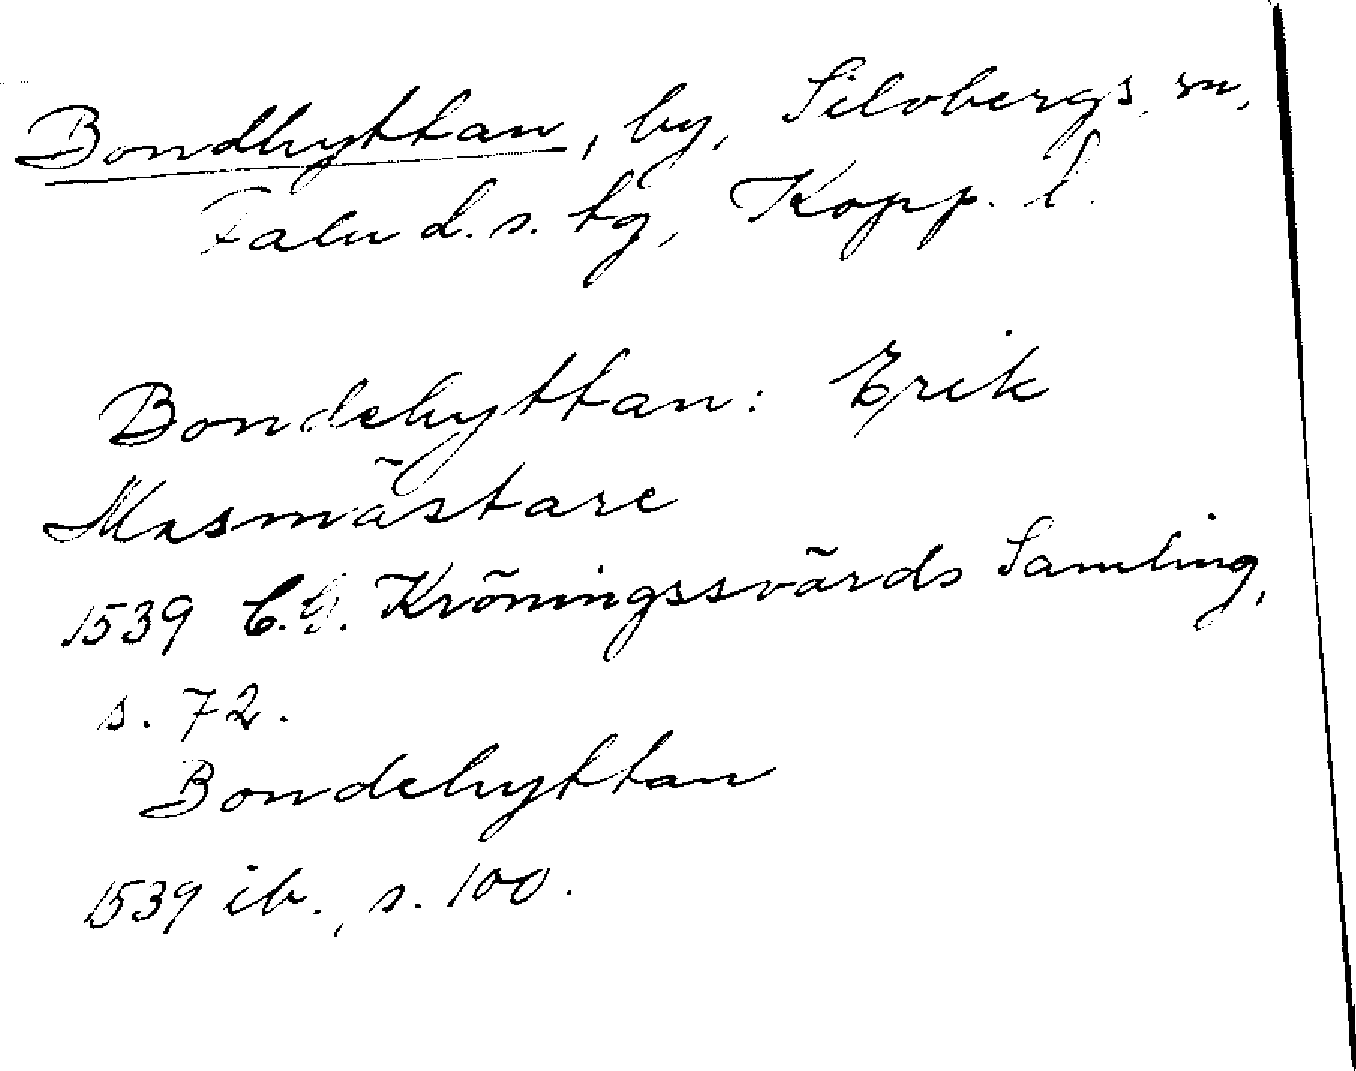 Bondhyttan, by, Silvbergs sn,
Falu d.s. tg, Kopp. l.
Bondehyttan: Erik
Masmästare
1539 C.G. Kröningssvärds Samling,
s. 72.
Bondehyttan
1539 ib., s. 100.